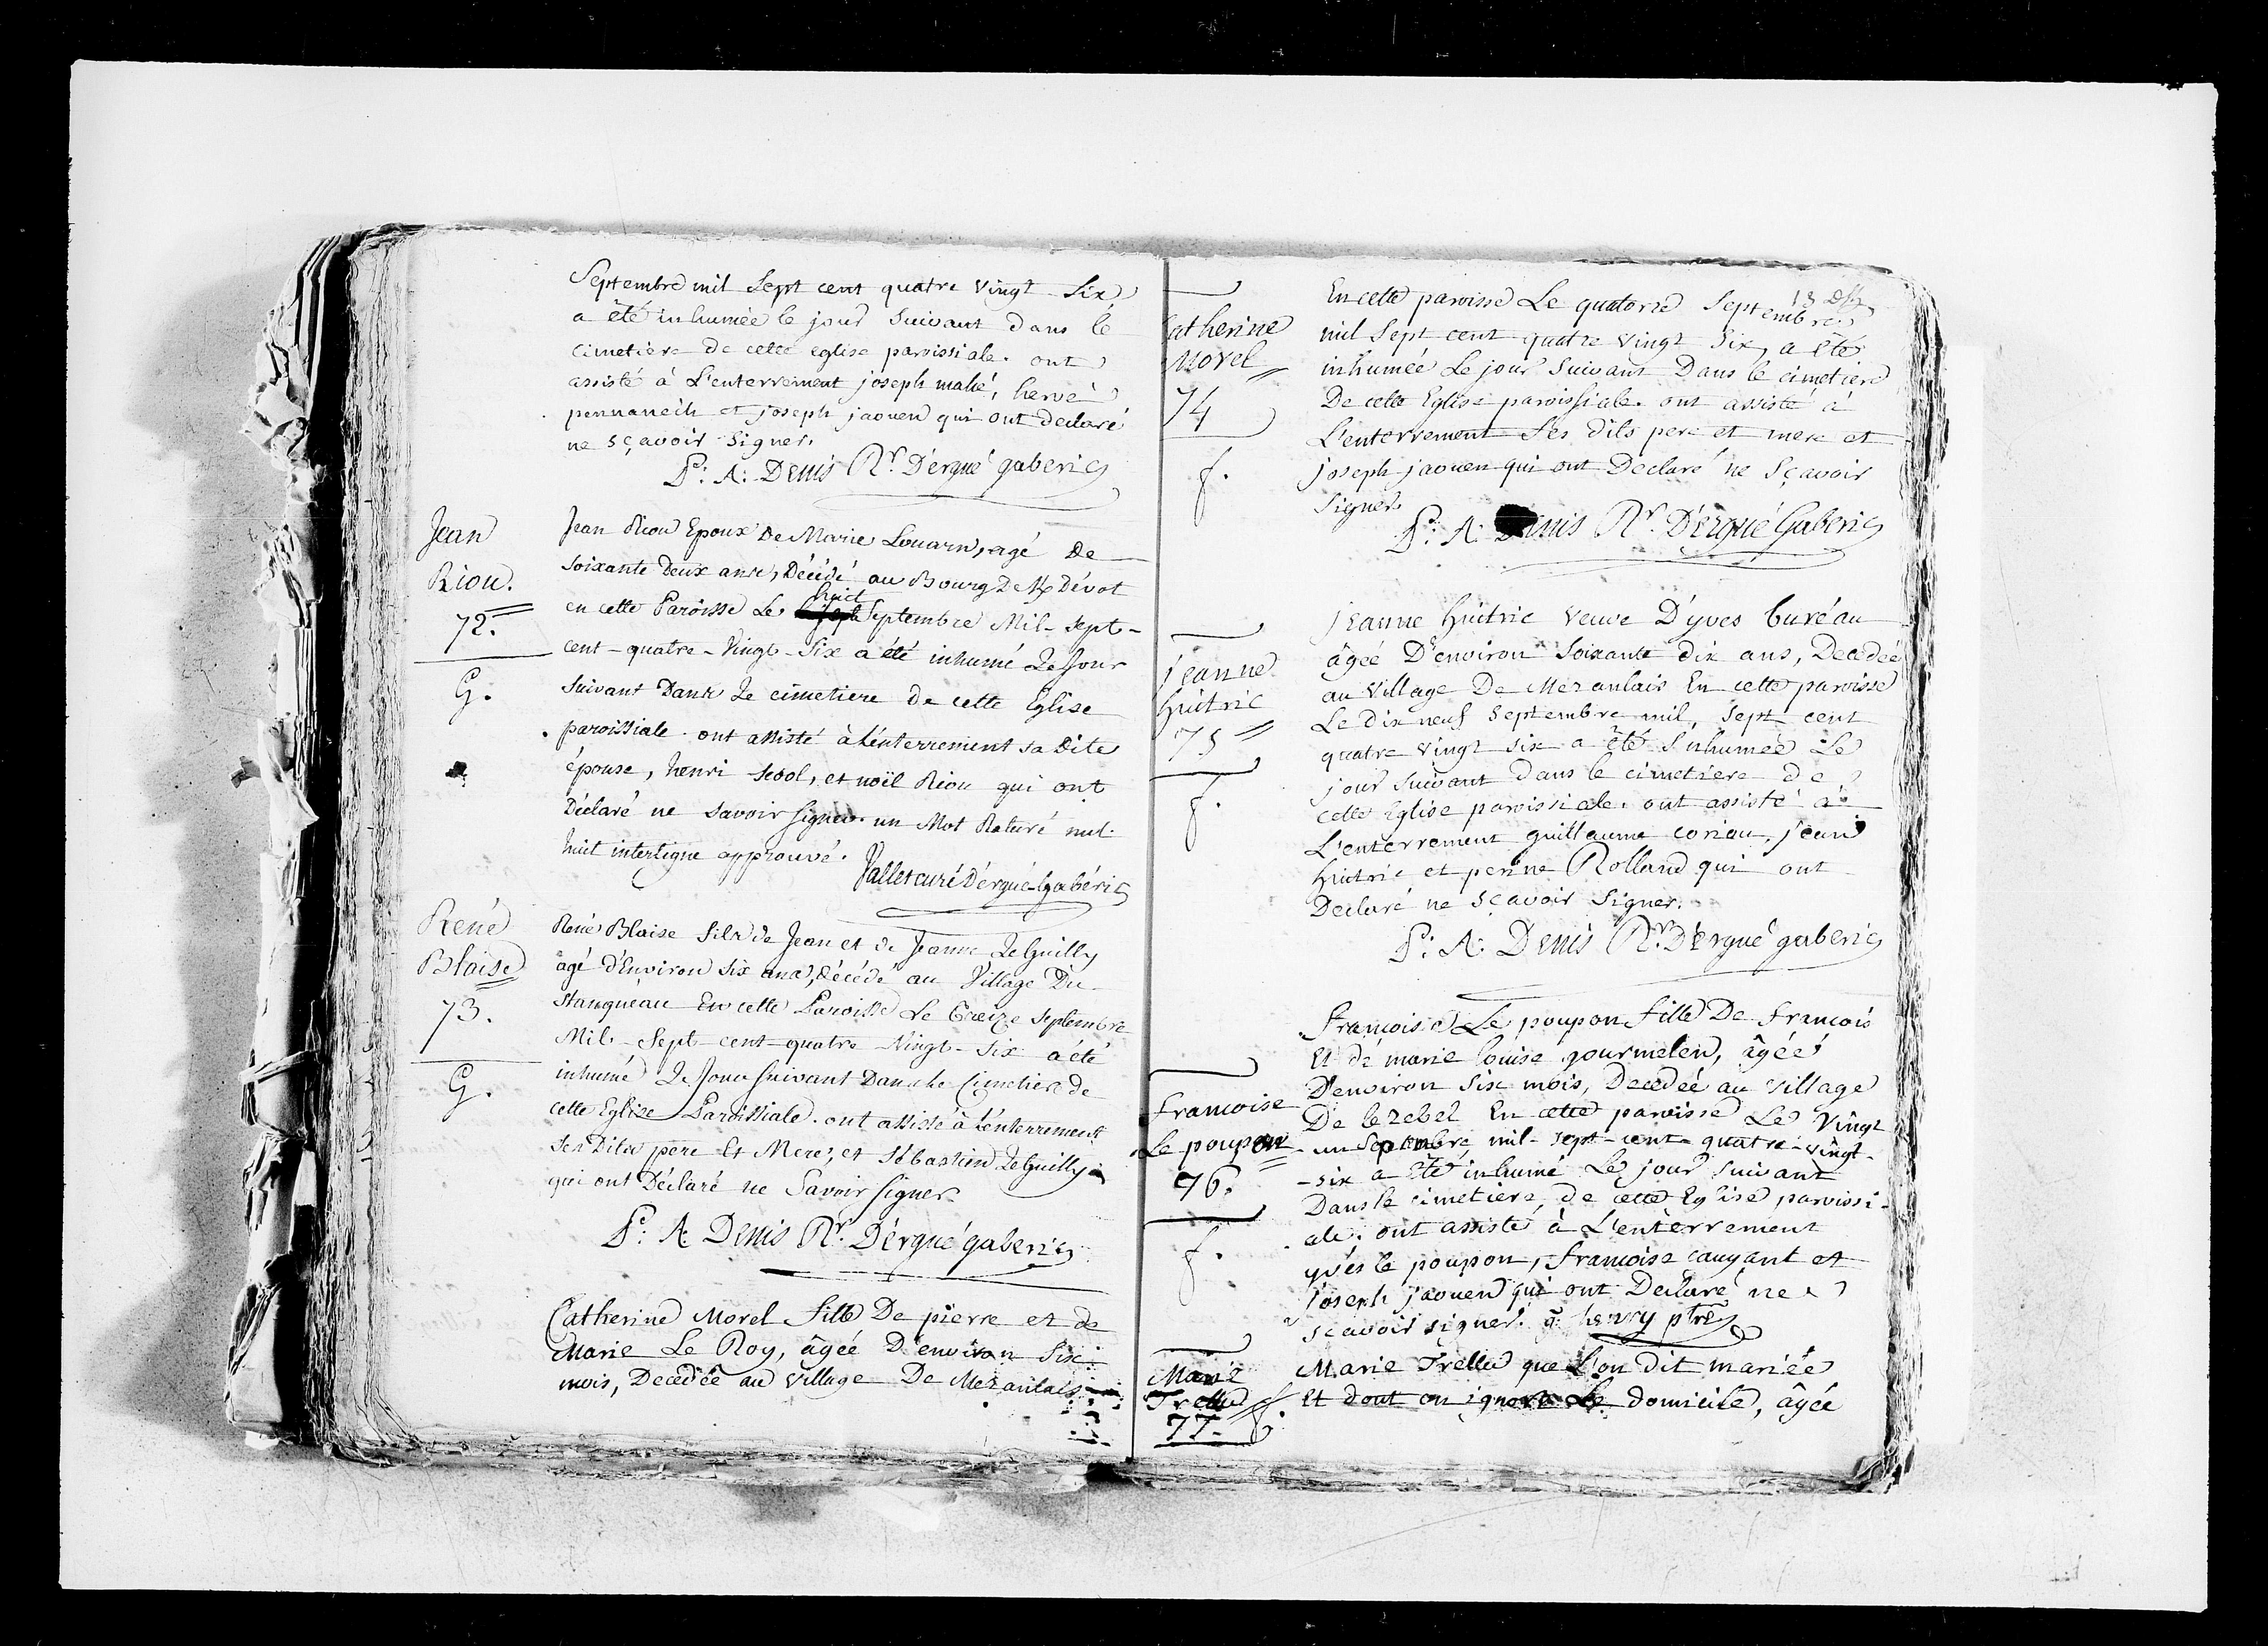 Septembre mil Sept cent quatre vingt Six
a été inhumée le jour Suivant dans le
cimetiere de cette eglise paroissiale. ont
assisté à L'enterrement joseph mahé, hervé
pennaneih et joseph jaouen qui ont declaré
ne sçavoir signer.
A: Denis Rr. D'ergué gaberic
Jean
Riou.
72.
G.
Jean Riou Epoux De Marie Louarn, agé De
soixante Deux ans, Décédé au Bourg De Dévot
en cette Paroisse Le huict Septembre Mil-Sept-
cent-quatre-Vingt-Six a été inhumé Le Jour
suivant Dans Le cimetiere de cette Eglise
paroissiale. ont assisté à L'enterrement sa Dite
épouse, henri et noël Riou qui ont
Déclaré ne savoir signer. un Mot Raturé nul.
huit interligne approuvé.
curé D'ergué-Gabéric
René
Blaise
73.
G.
René Blaise fils de Jean et de Jeanne Le Guilly
agé d'Environ six ans, Décédé au Village Du
Stanquéau En cette Paroisse Le treize Septembre
Mil-Sept-cent-quatre-Vingt-Six a été
inhumé Le Jour suivant Dans le Cimetiere de
cette Eglise Paroissiale. ont assisté à L'enterrement
ses Dits pere Et Mere, et Sébastien Le Guilly
qui ont Déclaré ne Savoir signer.
A: Denis Rr. D'ergué gaberic
Catherine Morel fille De pierre et de
Marie Le Roy, âgée D'environ Six
mois, Decedée au Village De Mezanlais
13
En cette paroisse Le quatorze Septembre
Catherine
Morel
74
f.
mil Sept cent quatre vingt Six, a été
inhumée Le jour Suivant Dans le cimetiere
De cette Eglise paroissiale. ont assisté à
L'enterrement Ses dits pere et mere et
joseph jaouen qui ont Declaré ne Sçavoir
Signer.
A: Denis Rr. D'ergué Gaberic
Jeanne
huitric
75
f.
Jeanne huitric veuve D'yves buréau
âgée D'environ Soixante dix ans, Decedée
au Village De Mezanlais En cette paroisse
Le dix neuf Septembre mil, Sept cent
quatre vingt six a été Inhumée Le
jour Suivant Dans le cimetiere de
cette Eglise paroissiale. ont assisté à
L'enterrement guillaume coriou, jean
huitric et perine Rolland qui ont
Declaré ne sçavoir signer.
A: Denis Rr. D'ergué gaberic
Francoise
Le poupon
76.
f.
Francoise Le poupon fille De francois
Et de marie louise gourmelen, âgée
D'environ Six mois, Decedée au village
De lezebel En cette paroisse Le Vingt
-un Septembre, mil-sept-cent-quatre-vingt-
-six a été inhumé Le jour suivant
Dans le cimetiere, de cette Eglise paroissi-
ale. ont assisté à L'enterrement
yvés le poupon, francoise caugant et
joseph jaouen qui ont Declaré ne
scavoir signer. g. henry ptre
Marie
Trellu
77.
f.
Marie Trellu que L'on dit mariée
Et dont on ignore Le domicile, âgée